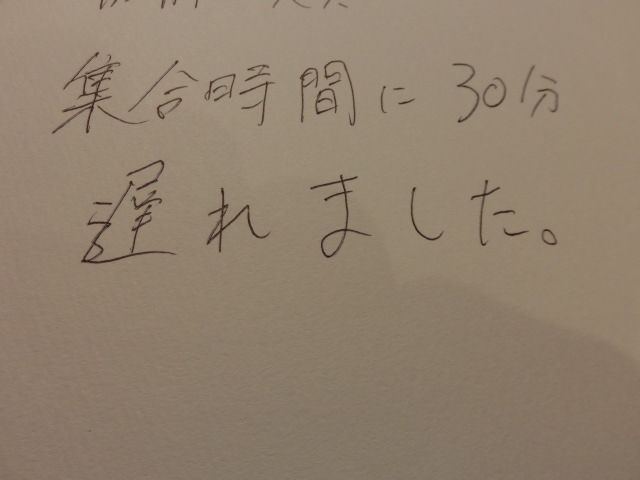 集合時間に30分
遅れました。